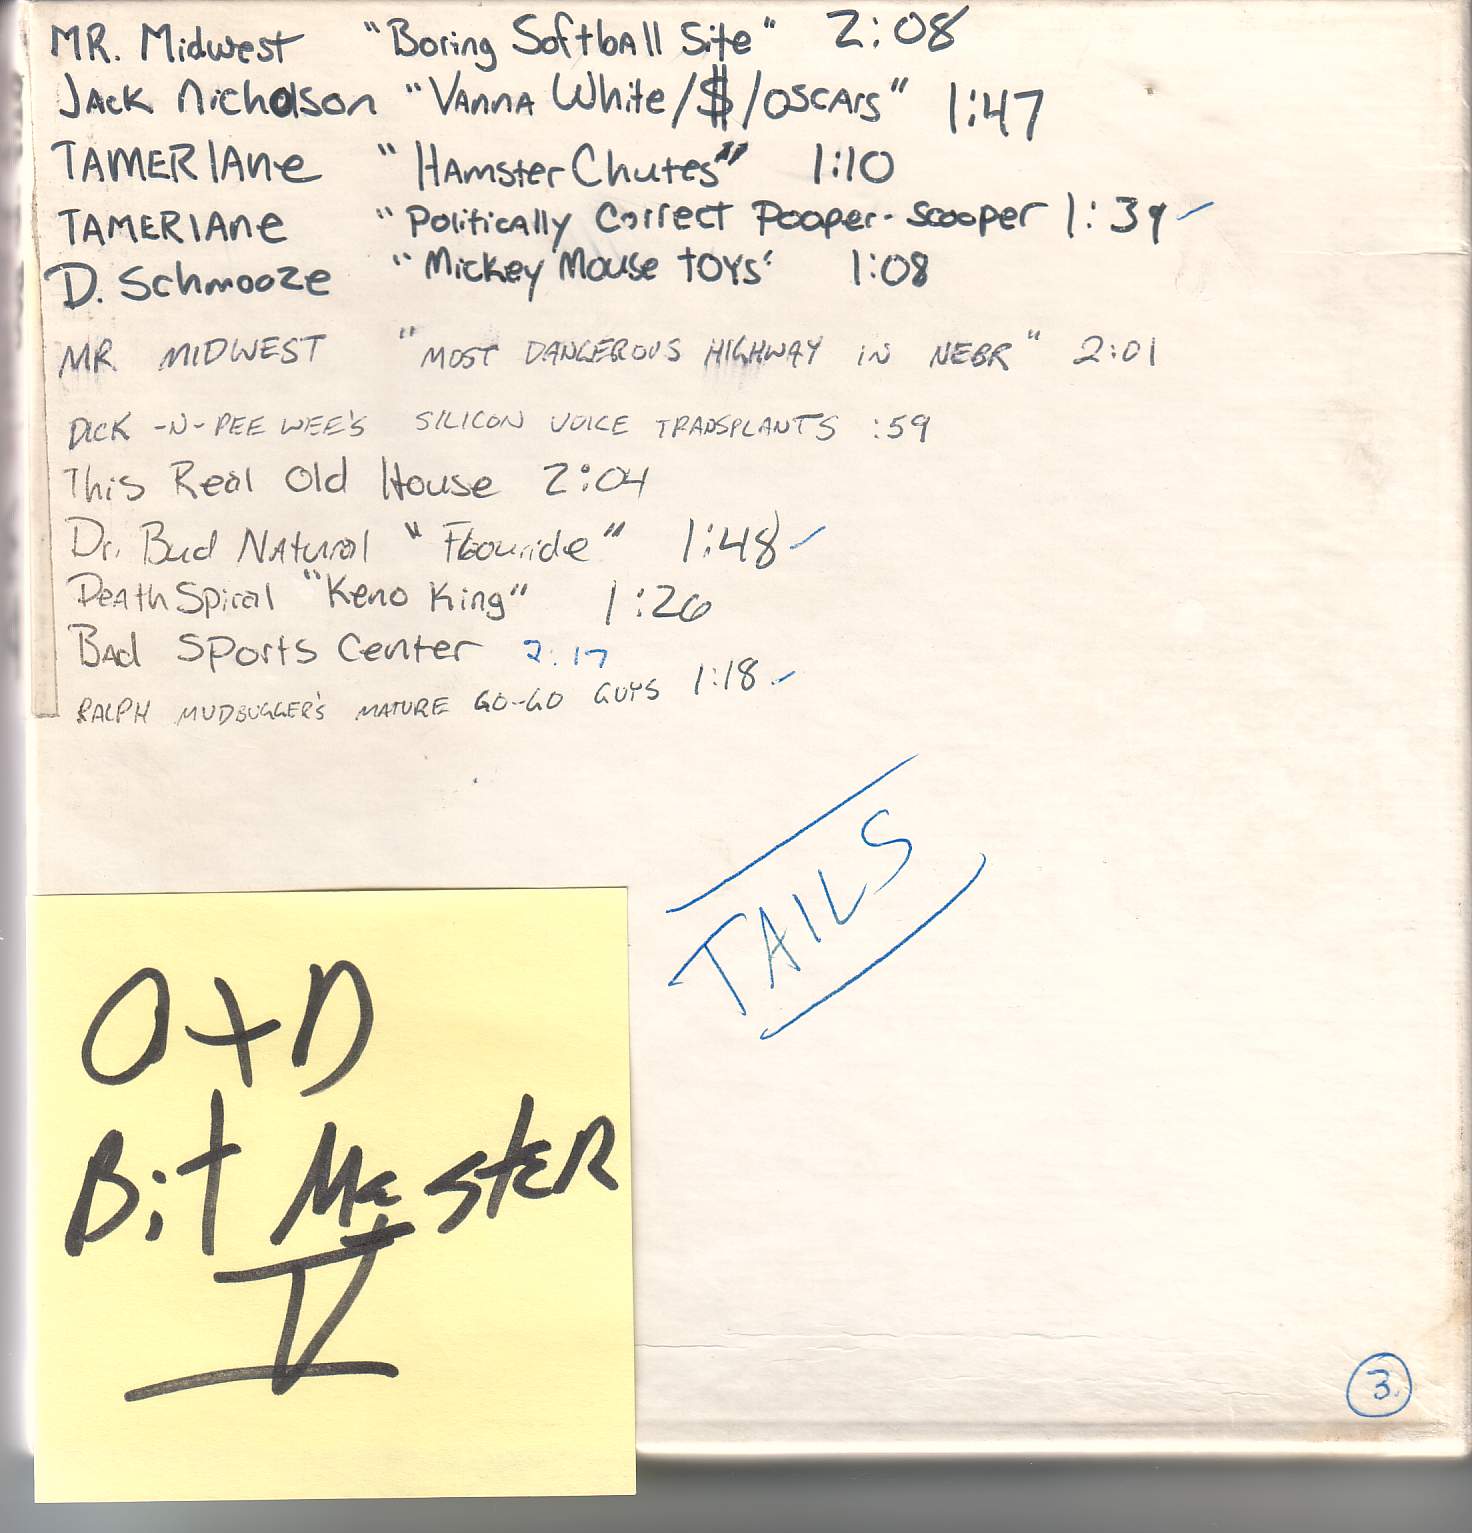 MR. Midwest "Boring Softball Site" 2:08
Jack Nicholson "Vanna White/$/oscars" 1:47
TAMERlAne "Hamster Chutes" 1:10
TAMERlAne "Politically Correct Pooper-scooper 1:39
D. Schmooze "Mickey Mouse toys" 1:08
MR MIDWEST "MOST DANGEROUS HIGHWAY IN NEBR" 2:01
DICK -N- PEE WEE'S SILICON VOICE TRANSPLANTS :59
This Real Old House 2:04
Dr. Bud Natural "Flouride" 1:48
Death Spiral "Keno King" 1:26
Bad Sports Center 2:17
RALPH MUDBUGGER'S MATURE GO-GO GUYS 1:18
TAILS
O+D
Bit Master
V
3